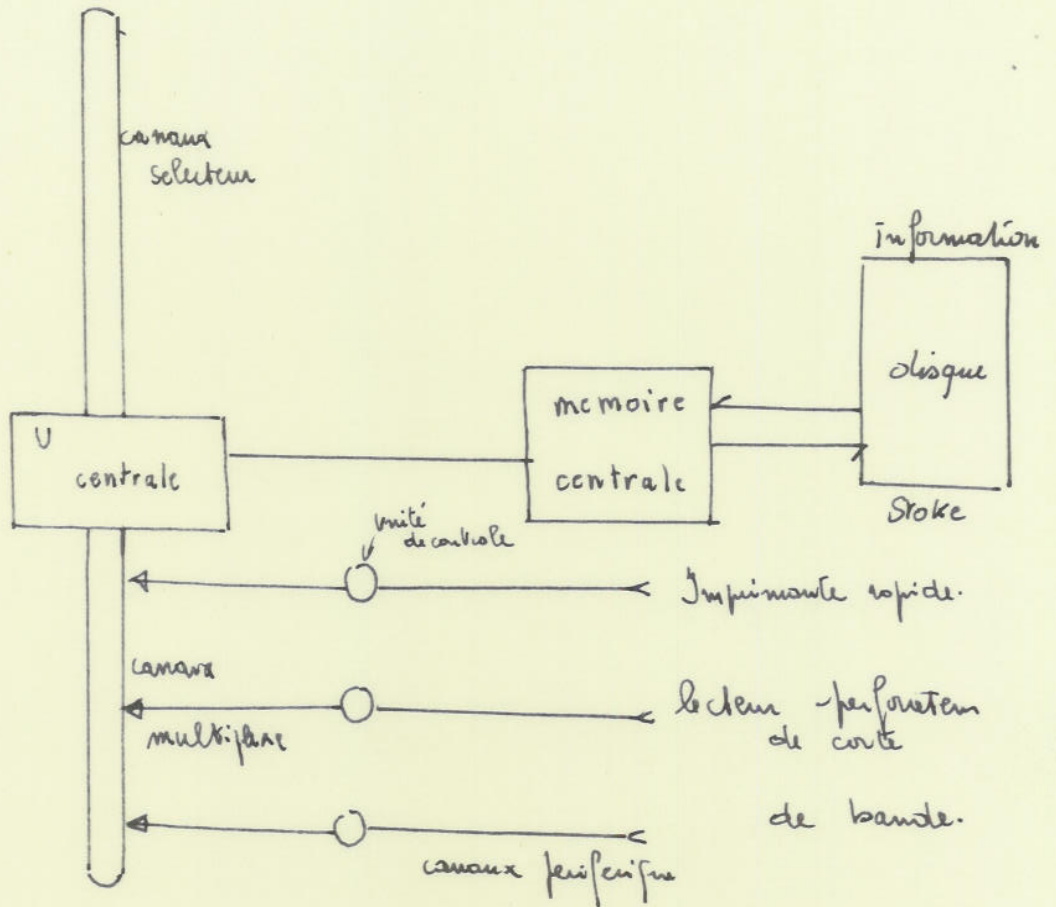 canaux
selecteur
information
disque
Stoke
memoire
centrale
U
centrale
unité
de controle
Imprimante rapide.
canaux
multiplexe
lecteur - perforateur
de carte
de bande.
canaux periferique